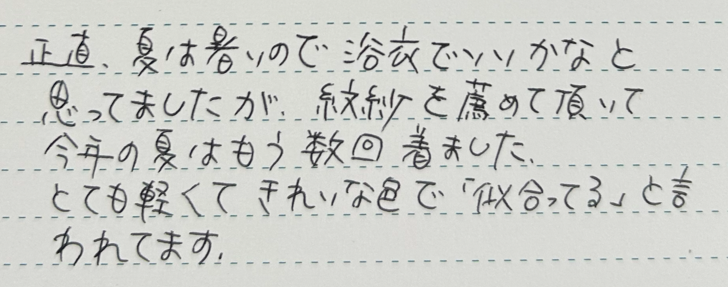 正直、夏は暑いので浴衣でいいかなと
思ってましたが、紋紗を薦めて頂いて
今年の夏はもう数回着ました。
とても軽くてきれいな色で「似合ってる」と言
われてます。